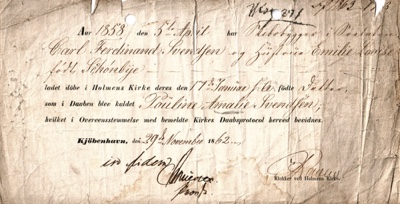 Aar 1858 den 5te April har Skibsbygger
Carl Ferdinand Svendsen og Hustrue Emilie Louise
født Schorebye
ladet døbe i Holmens Kirke deres den 17de Januar s. A. fødte Datter,
som i Daaben blev kaldet Pouline Amalie Svendsen,
hvilket i Overeensstemmelse med bemeldte Kirkes Daabsprotocol herved bevidnes.
Kjöbenhavn, den 29de November 1862
in fidem
Klokker ved Holmens Kirke.